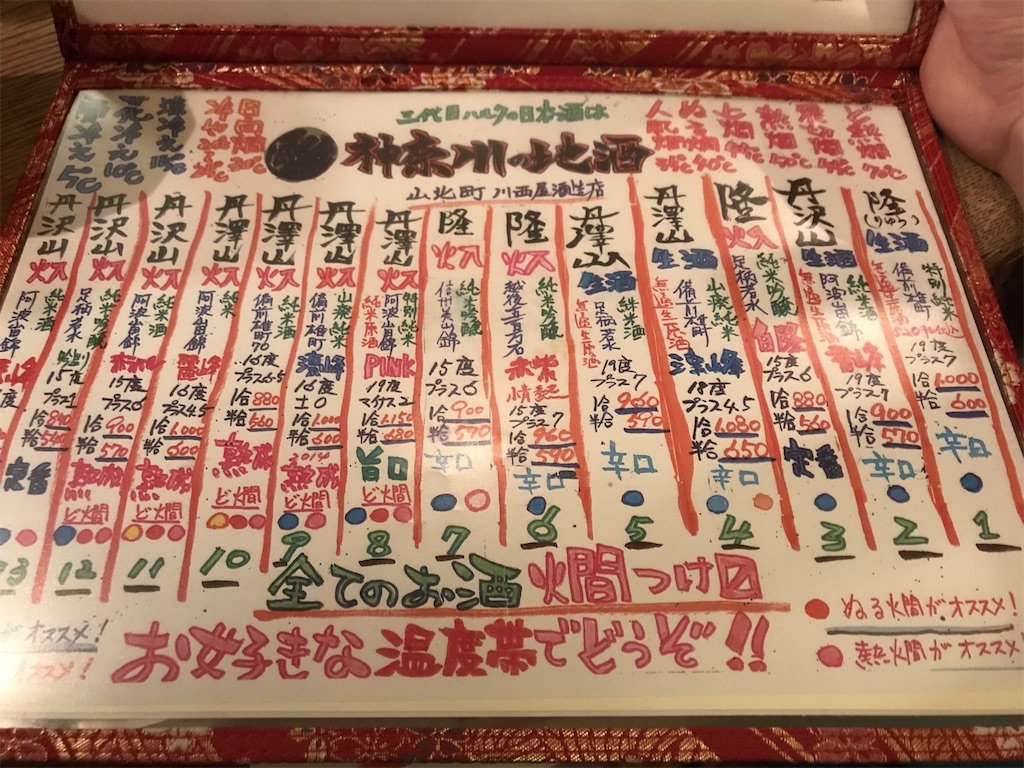 三代目ハルクの日本酒は
神奈川の地酒
山北町 川西屋酒造店
飛切燗
熱燗
上燗
ぬる燗
人肌燗
日向燗
涼冷え 15℃
花冷え 10℃
雪冷え 5℃
隆
(りゅう)
生酒
特別純米
備前雄町
プラス7
1合 1,000
半合 600
辛口
1
丹沢山
生酒
純米酒
阿波山田錦
無濾過生原酒
19度
プラス7
1合 900
半合 570
辛口
2
隆
火入
純米吟醸
足柄若水
白隆
15度
プラス6
1合 880
半合 560
定番
3
丹澤山
生酒
山廃純米
備前雄町
無濾過生原酒
凜峰
18度
プラス4.5
1合 1,080
半合 650
辛口
4
丹澤山
生酒
純米酒
足柄若水
無濾過生原酒
19度
プラス7
1合 960
半合 570
辛口
5
隆
火入
純米吟醸
越後五百万石
赤紫
情熱
15度
プラス7
1合 960
半合 590
辛口
6
隆
火入
純米吟醸
信州美山錦
15度
プラス6
1合 900
半合 570
辛口
7
丹澤山
火入
特別純米
阿波山田錦
純米原酒
PINK
19度
マイナス2
1合 1,150
半合 680
旨口
8
丹澤山
火入
山廃純米
備前雄町
凜峰
16度
±0
1合 1,000
半合 600
2014
熟成
ど燗
9
丹澤山
火入
純米酒
備前雄町70
16度
プラス6.5
1合 880
半合 560
熟成
ど燗
10
丹澤山
火入
純米
阿波山田錦
麗峰
16度
プラス4.5
1合 1,000
半合 600
熟成
ど燗
11
丹沢山
火入
純米吟醸
足柄若水
15度
プラス6
1合 900
半合 570
熟成
ど燗
12
丹沢山
火入
純米酒
阿波山田錦
吟造り
15度
プラス1
1合 840
半合 540
定番
13
全てのお酒 燗つけ〼
お好きな温度帯でどうぞ!!
ぬる燗がオススメ!
熱燗がオススメ
がオススメ!
オススメ!